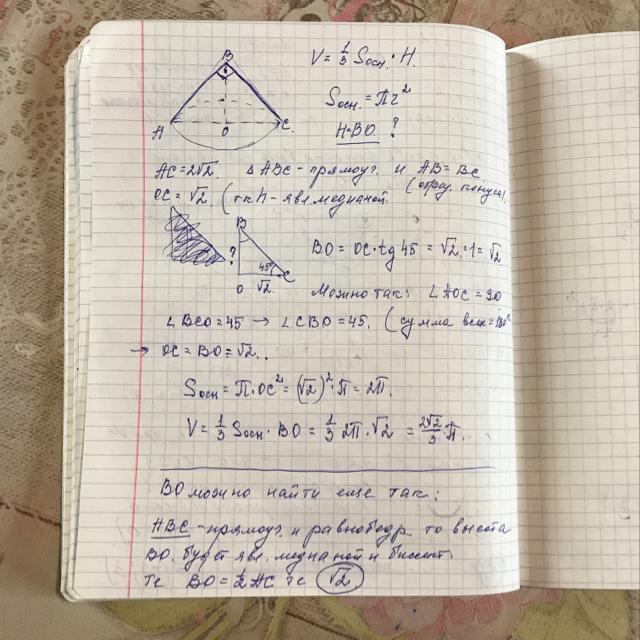 B
A
O
C
V = 1/3 Sосн. · H.
Sосн. = Пr²
H=BO ?
AC = 2√2. △ABC - прямоуг. и AB = BC
OC = √2. (т.к h - явл. медианой. (образ. конуса).
B
?
45°
C
O √2.
BO = OC · tg 45 = √2 · 1 = √2
Можно так: ∠AOC = 90
∠BCO = 45 → ∠CBO = 45. (сумма всех = 180°
→ OC = BO = √2..
Sосн = П · OC² = (√2)² · П = 2П.
V = 1/3 Sосн · BO = 1/3 2П · √2 = 2√2/3 П.
BO можно найти еще так:
ABC - прямоуг. и равнобедр. то высота
BO. будет явл. медианой и биссект.
Те BO = AC те √2